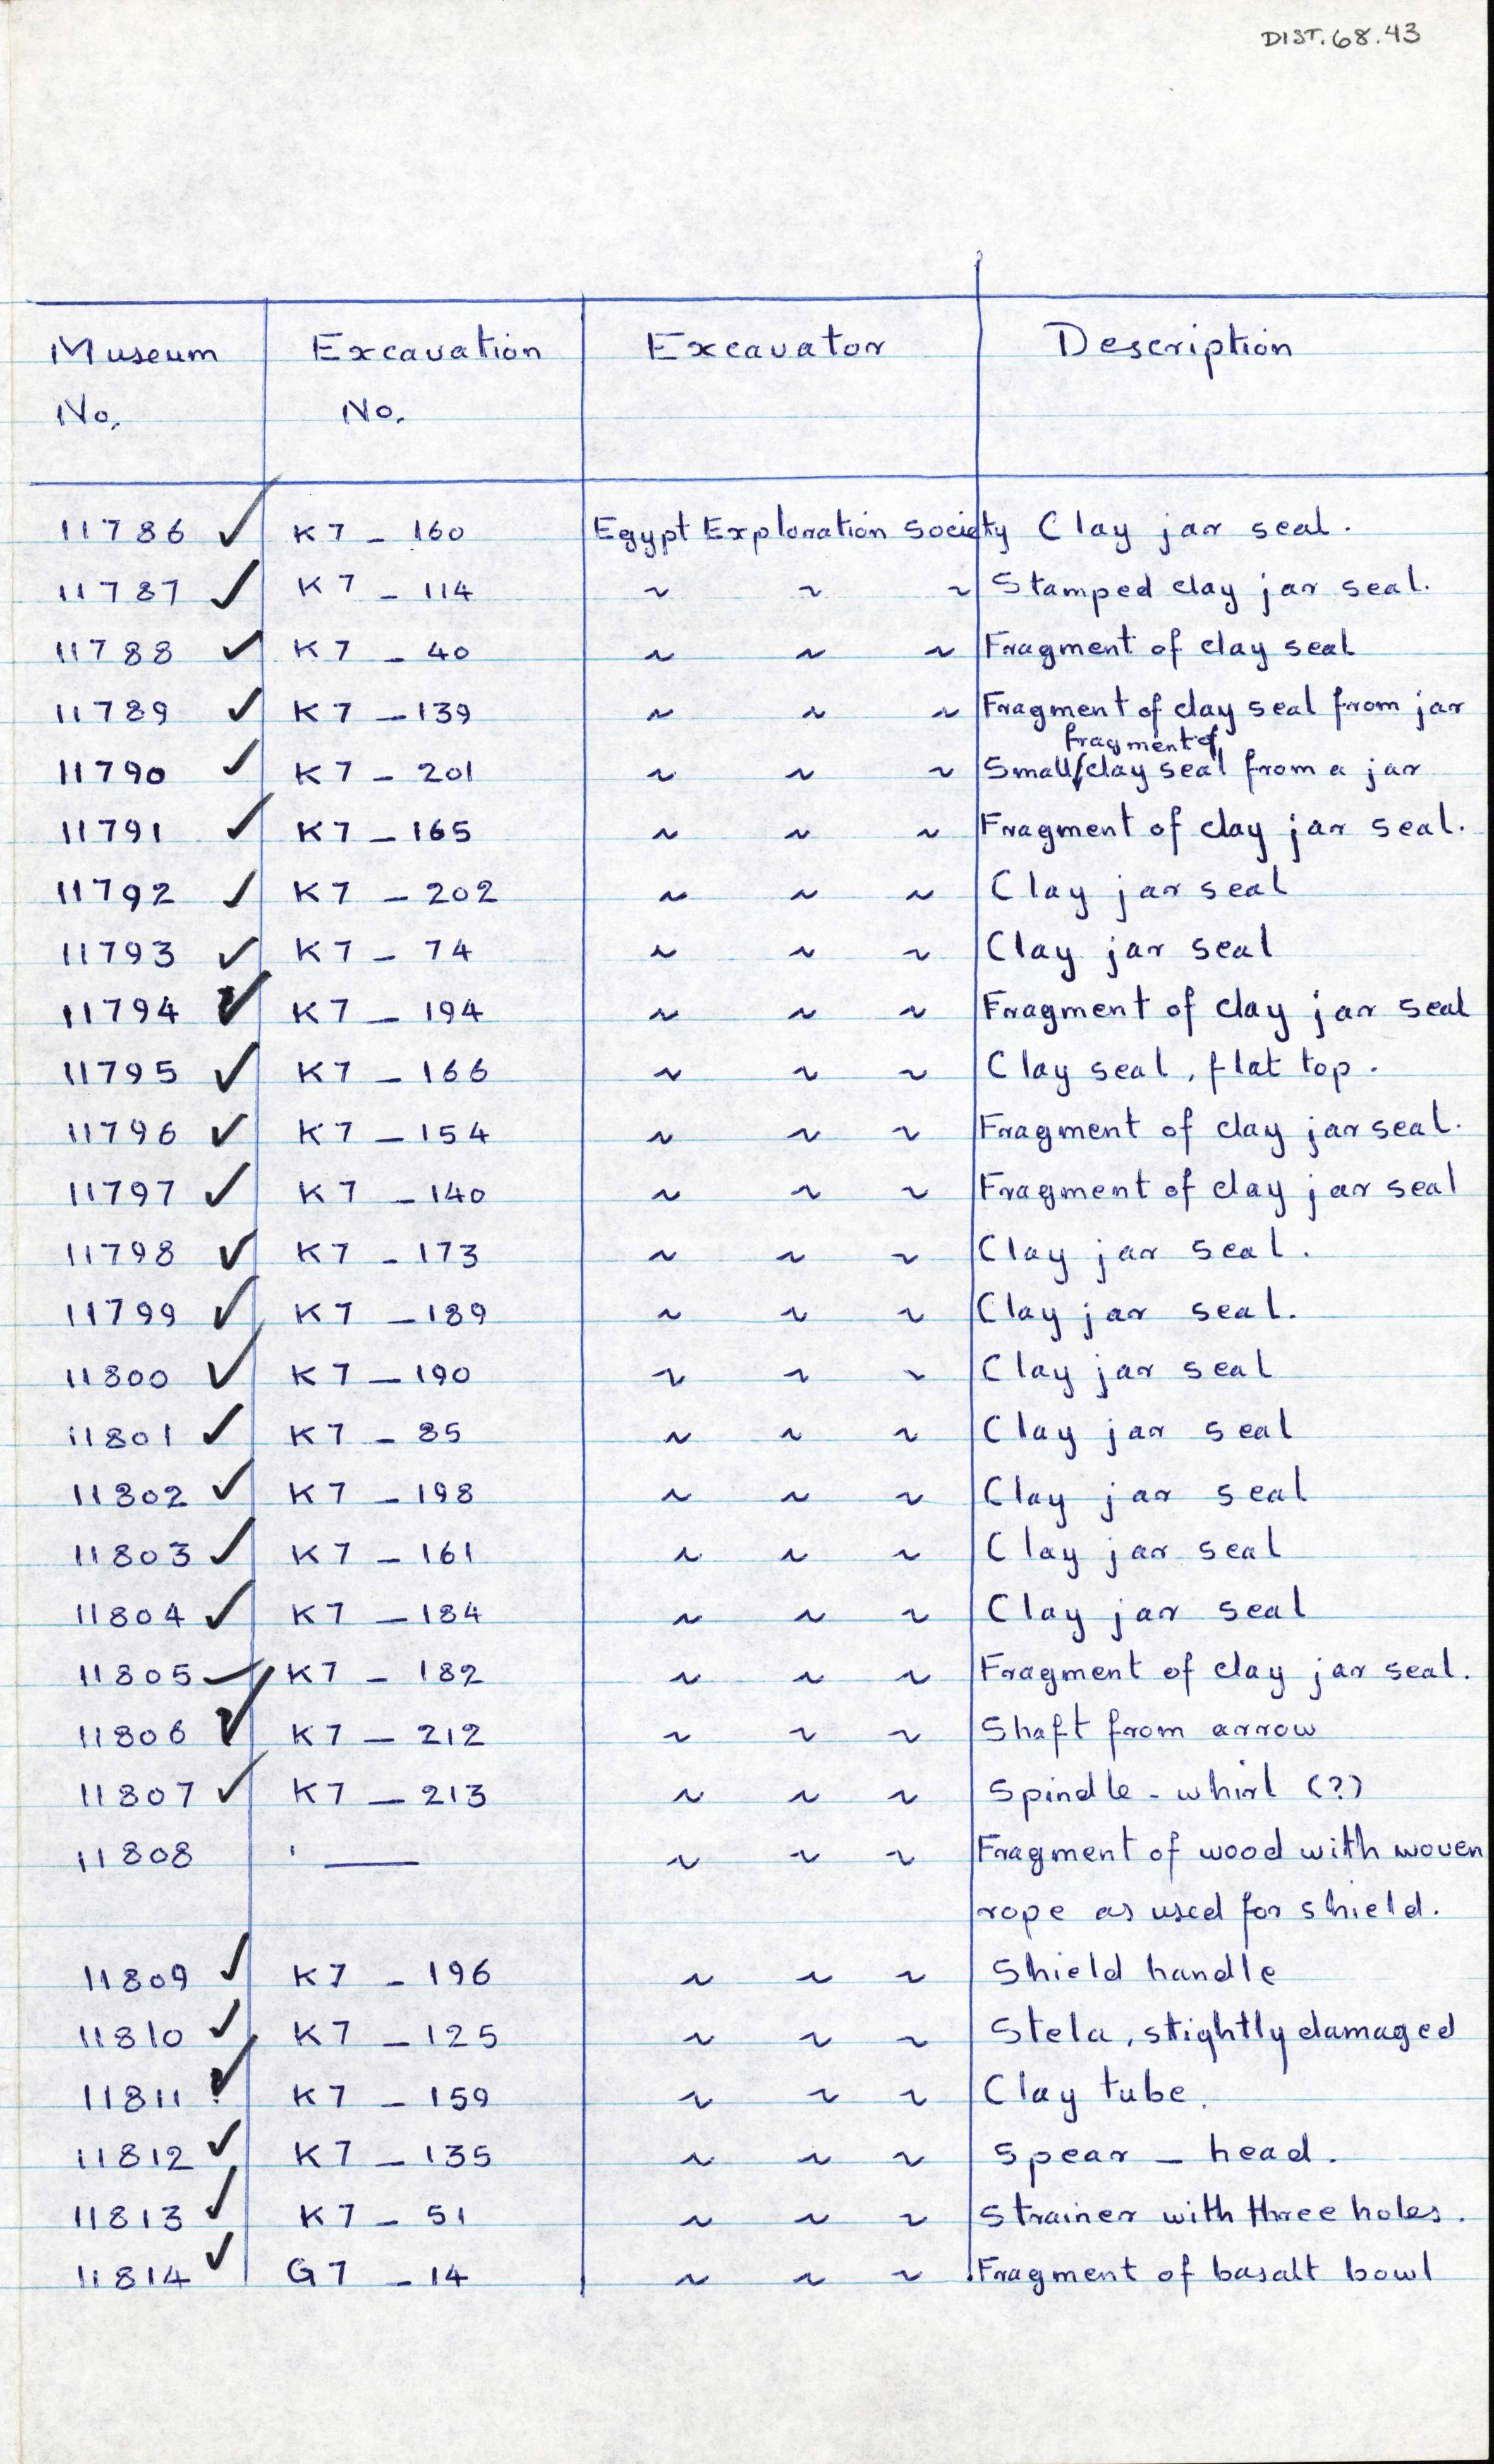 DIST.68.43
Museum No. Excavation No. Excavator Description
11786 ✓ K7 - 160 Egypt Exploration Society Clay jar seal.
11787 ✓ K7 - 114 ~ ~ ~ Stamped clay jar seal.
11788 ✓ K7 - 40 ~ ~ ~ Fragment of clay seal
11789 ✓ K7 - 139 ~ ~ ~ Fragment of clay seal from jar
11790 ✓ K7 - 201 ~ ~ ~ Small fragment of clay seal from a jar
11791 ✓ K7 - 165 ~ ~ ~ Fragment of clay jar seal.
11792 ✓ K7 - 202 ~ ~ ~ Clay jar seal
11793 ✓ K7 - 74 ~ ~ ~ Clay jar seal
11794 ✓ K7 - 194 ~ ~ ~ Fragment of clay jar seal
11795 ✓ K7 - 166 ~ ~ ~ Clay seal, flat top.
11796 ✓ K7 - 154 ~ ~ ~ Fragment of clay jar seal.
11797 ✓ K7 - 140 ~ ~ ~ Fragment of clay jar seal
11798 ✓ K7 - 173 ~ ~ ~ Clay jar seal.
11799 ✓ K7 - 189 ~ ~ ~ Clay jar seal.
11800 ✓ K7 - 190 ~ ~ ~ Clay jar seal
11801 ✓ K7 - 85 ~ ~ ~ Clay jar seal
11802 ✓ K7 - 198 ~ ~ ~ Clay jar seal
11803 ✓ K7 - 161 ~ ~ ~ Clay jar seal
11804 ✓ K7 - 184 ~ ~ ~ Clay jar seal
11805 ✓ K7 - 182 ~ ~ ~ Fragment of clay jar seal.
11806 ✓ K7 - 212 ~ ~ ~ Shaft from arrow
11807 ✓ K7 - 213 ~ ~ ~ Spindle - whirl (?)
11808 — ~ ~ ~ Fragment of wood with woven
rope as used for shield.
11809 ✓ K7 - 196 ~ ~ ~ Shield handle
11810 ✓ K7 - 125 ~ ~ ~ Stela, slightly damaged
11811 ✓ K7 - 159 ~ ~ ~ Clay tube.
11812 ✓ K7 - 135 ~ ~ ~ Spear - head.
11813 ✓ K7 - 51 ~ ~ ~ Strainer with three holes.
11814 ✓ G7 - 14 ~ ~ ~ Fragment of basalt bowl